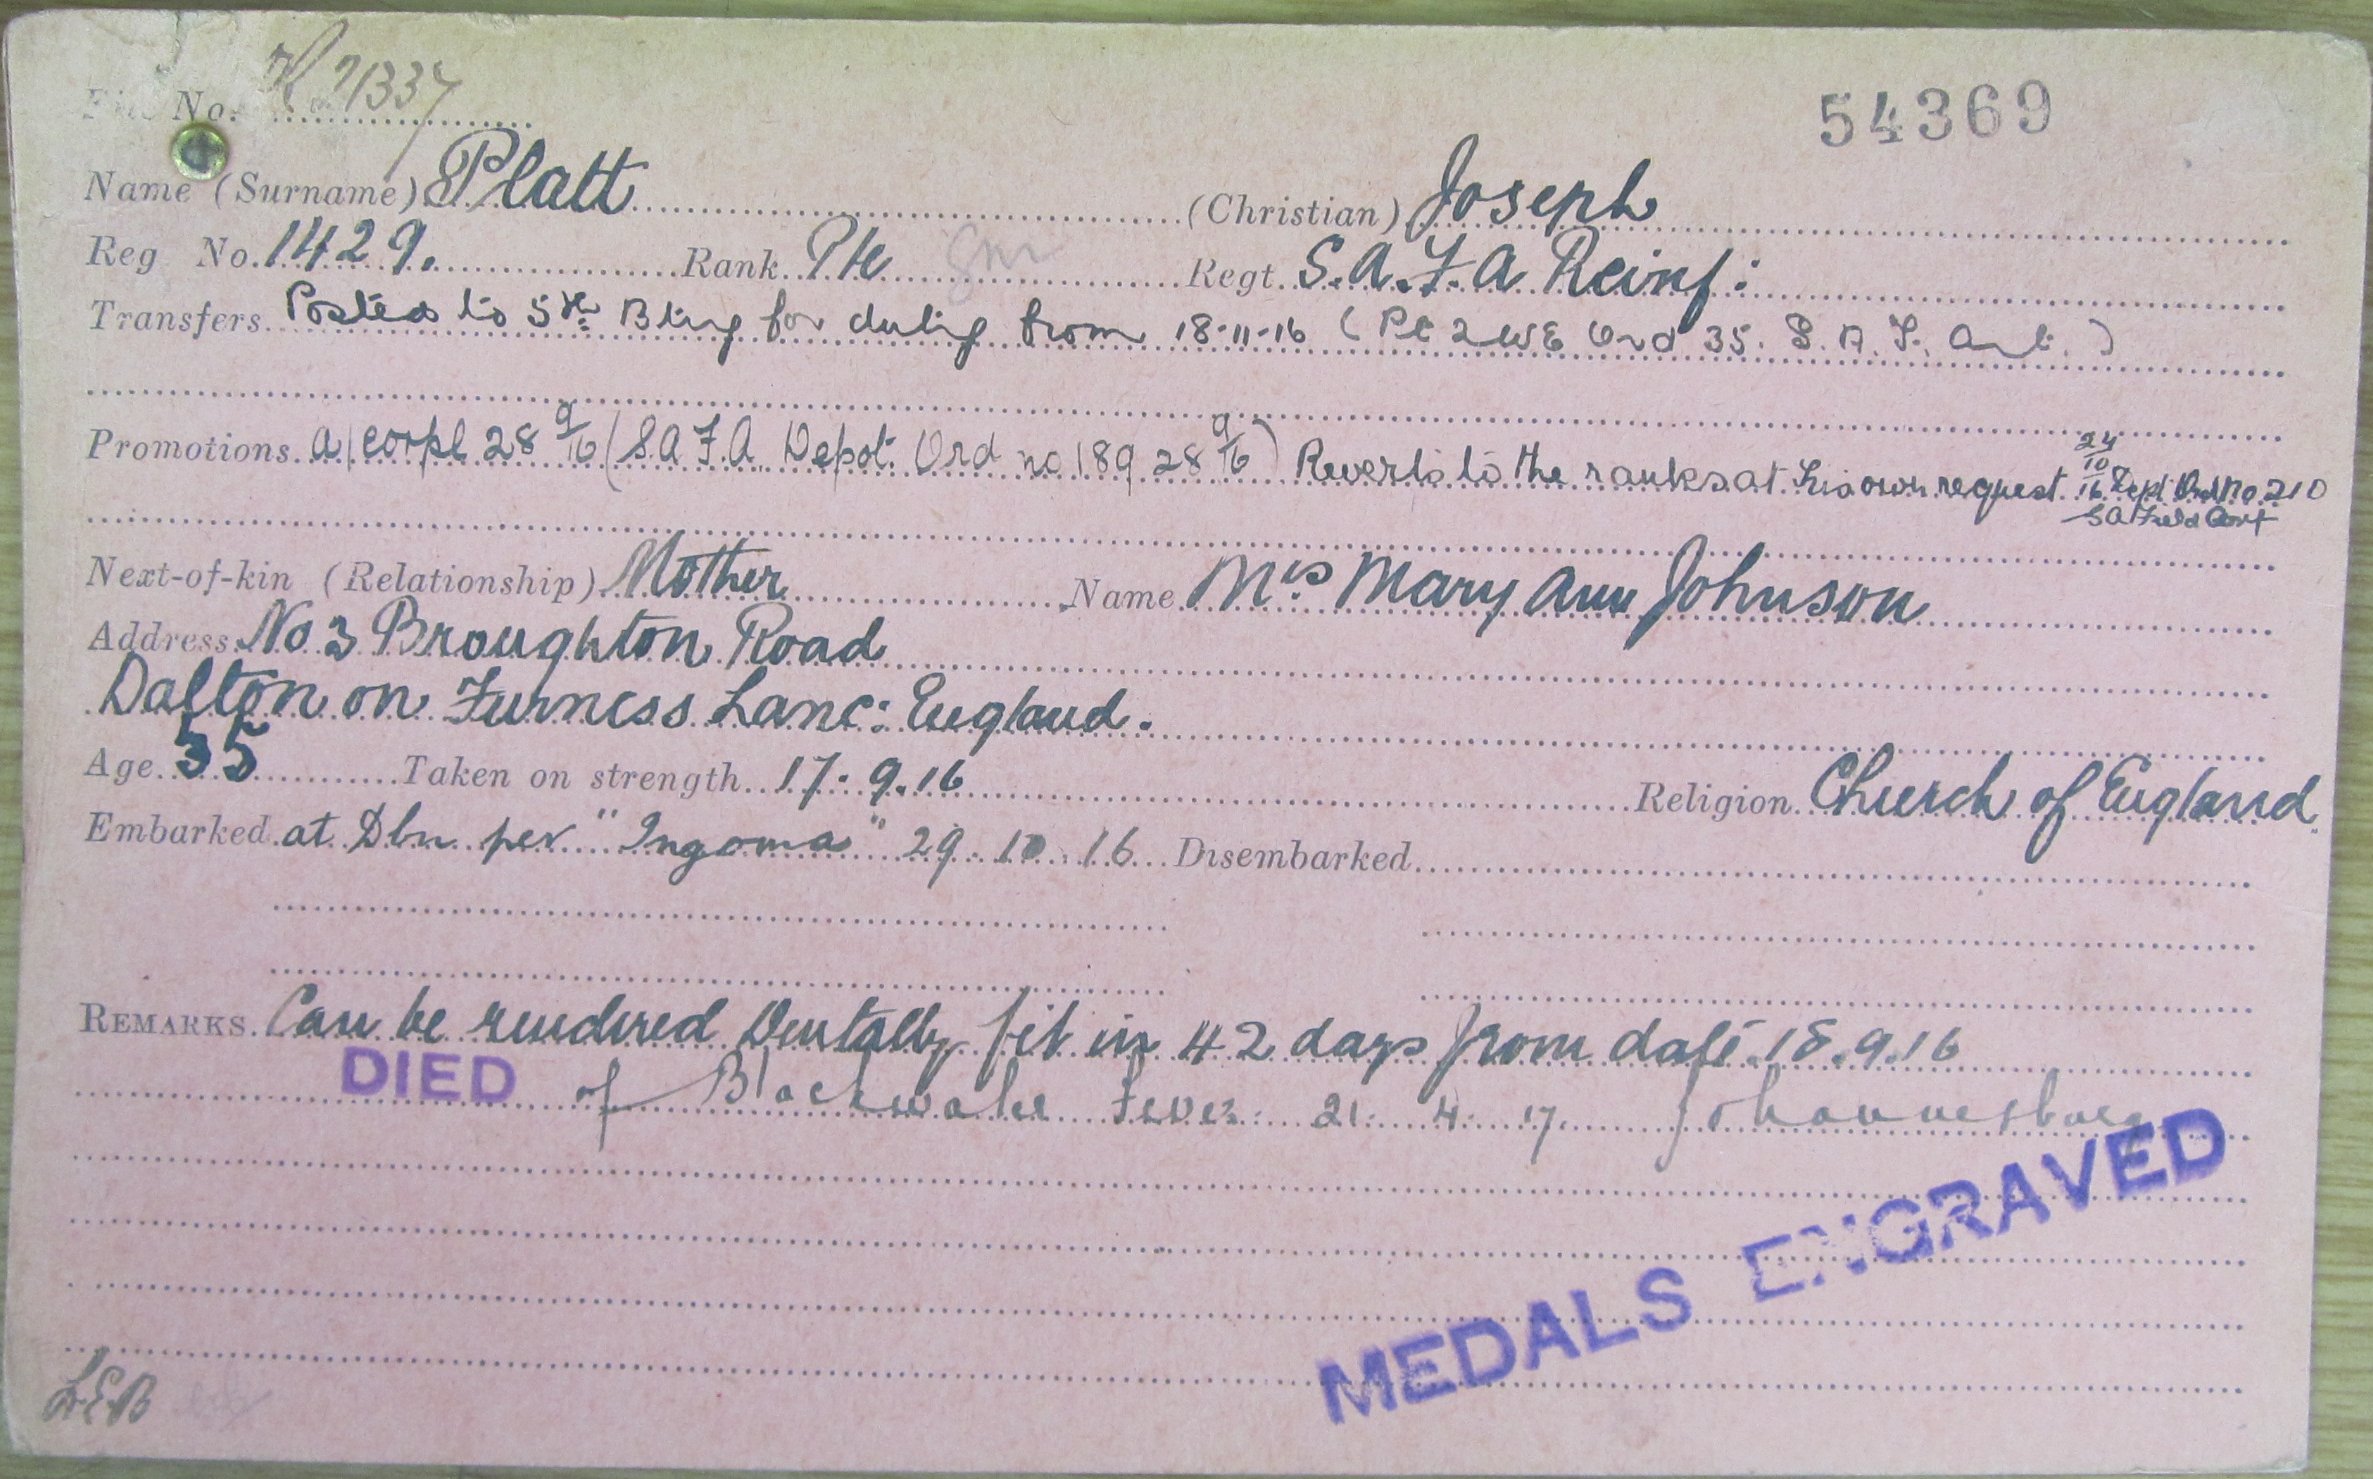 File No. 71337
54369
Name (Surname) Platt (Christian) Joseph
Reg No. 1429. Rank Pte Gnr Regt. S.A.F.A Reinf:
Transfers Posted to 5th Btry for duty from 18-11-16 (Pt 2 W E Ord 35. S. A. F. Art.)
Promotions. A/Corpl 28 9/16 (S.A.F.A. Depot. Ord no 189 28 9/16) Reverts to the ranks at his own request 24/10/16 Dept Ord No. 210
SA Field Art
Next-of-kin (Relationship) Mother Name Mrs Mary Ann Johnson
Address. No 3 Broughton Road
Dalton on Furness Lanc: England.
Age 35 Taken on strength 17.9.16 Religion Church of England
Embarked at Dbn per "Ingoma" 29.10.16 Disembarked
REMARKS. Can be rendered Dentally fit in 42 days from date 18.9.16
DIED of Blackwater Fever 21. 4. 17. Johannesburg
MEDALS ENGRAVED
L.E.B